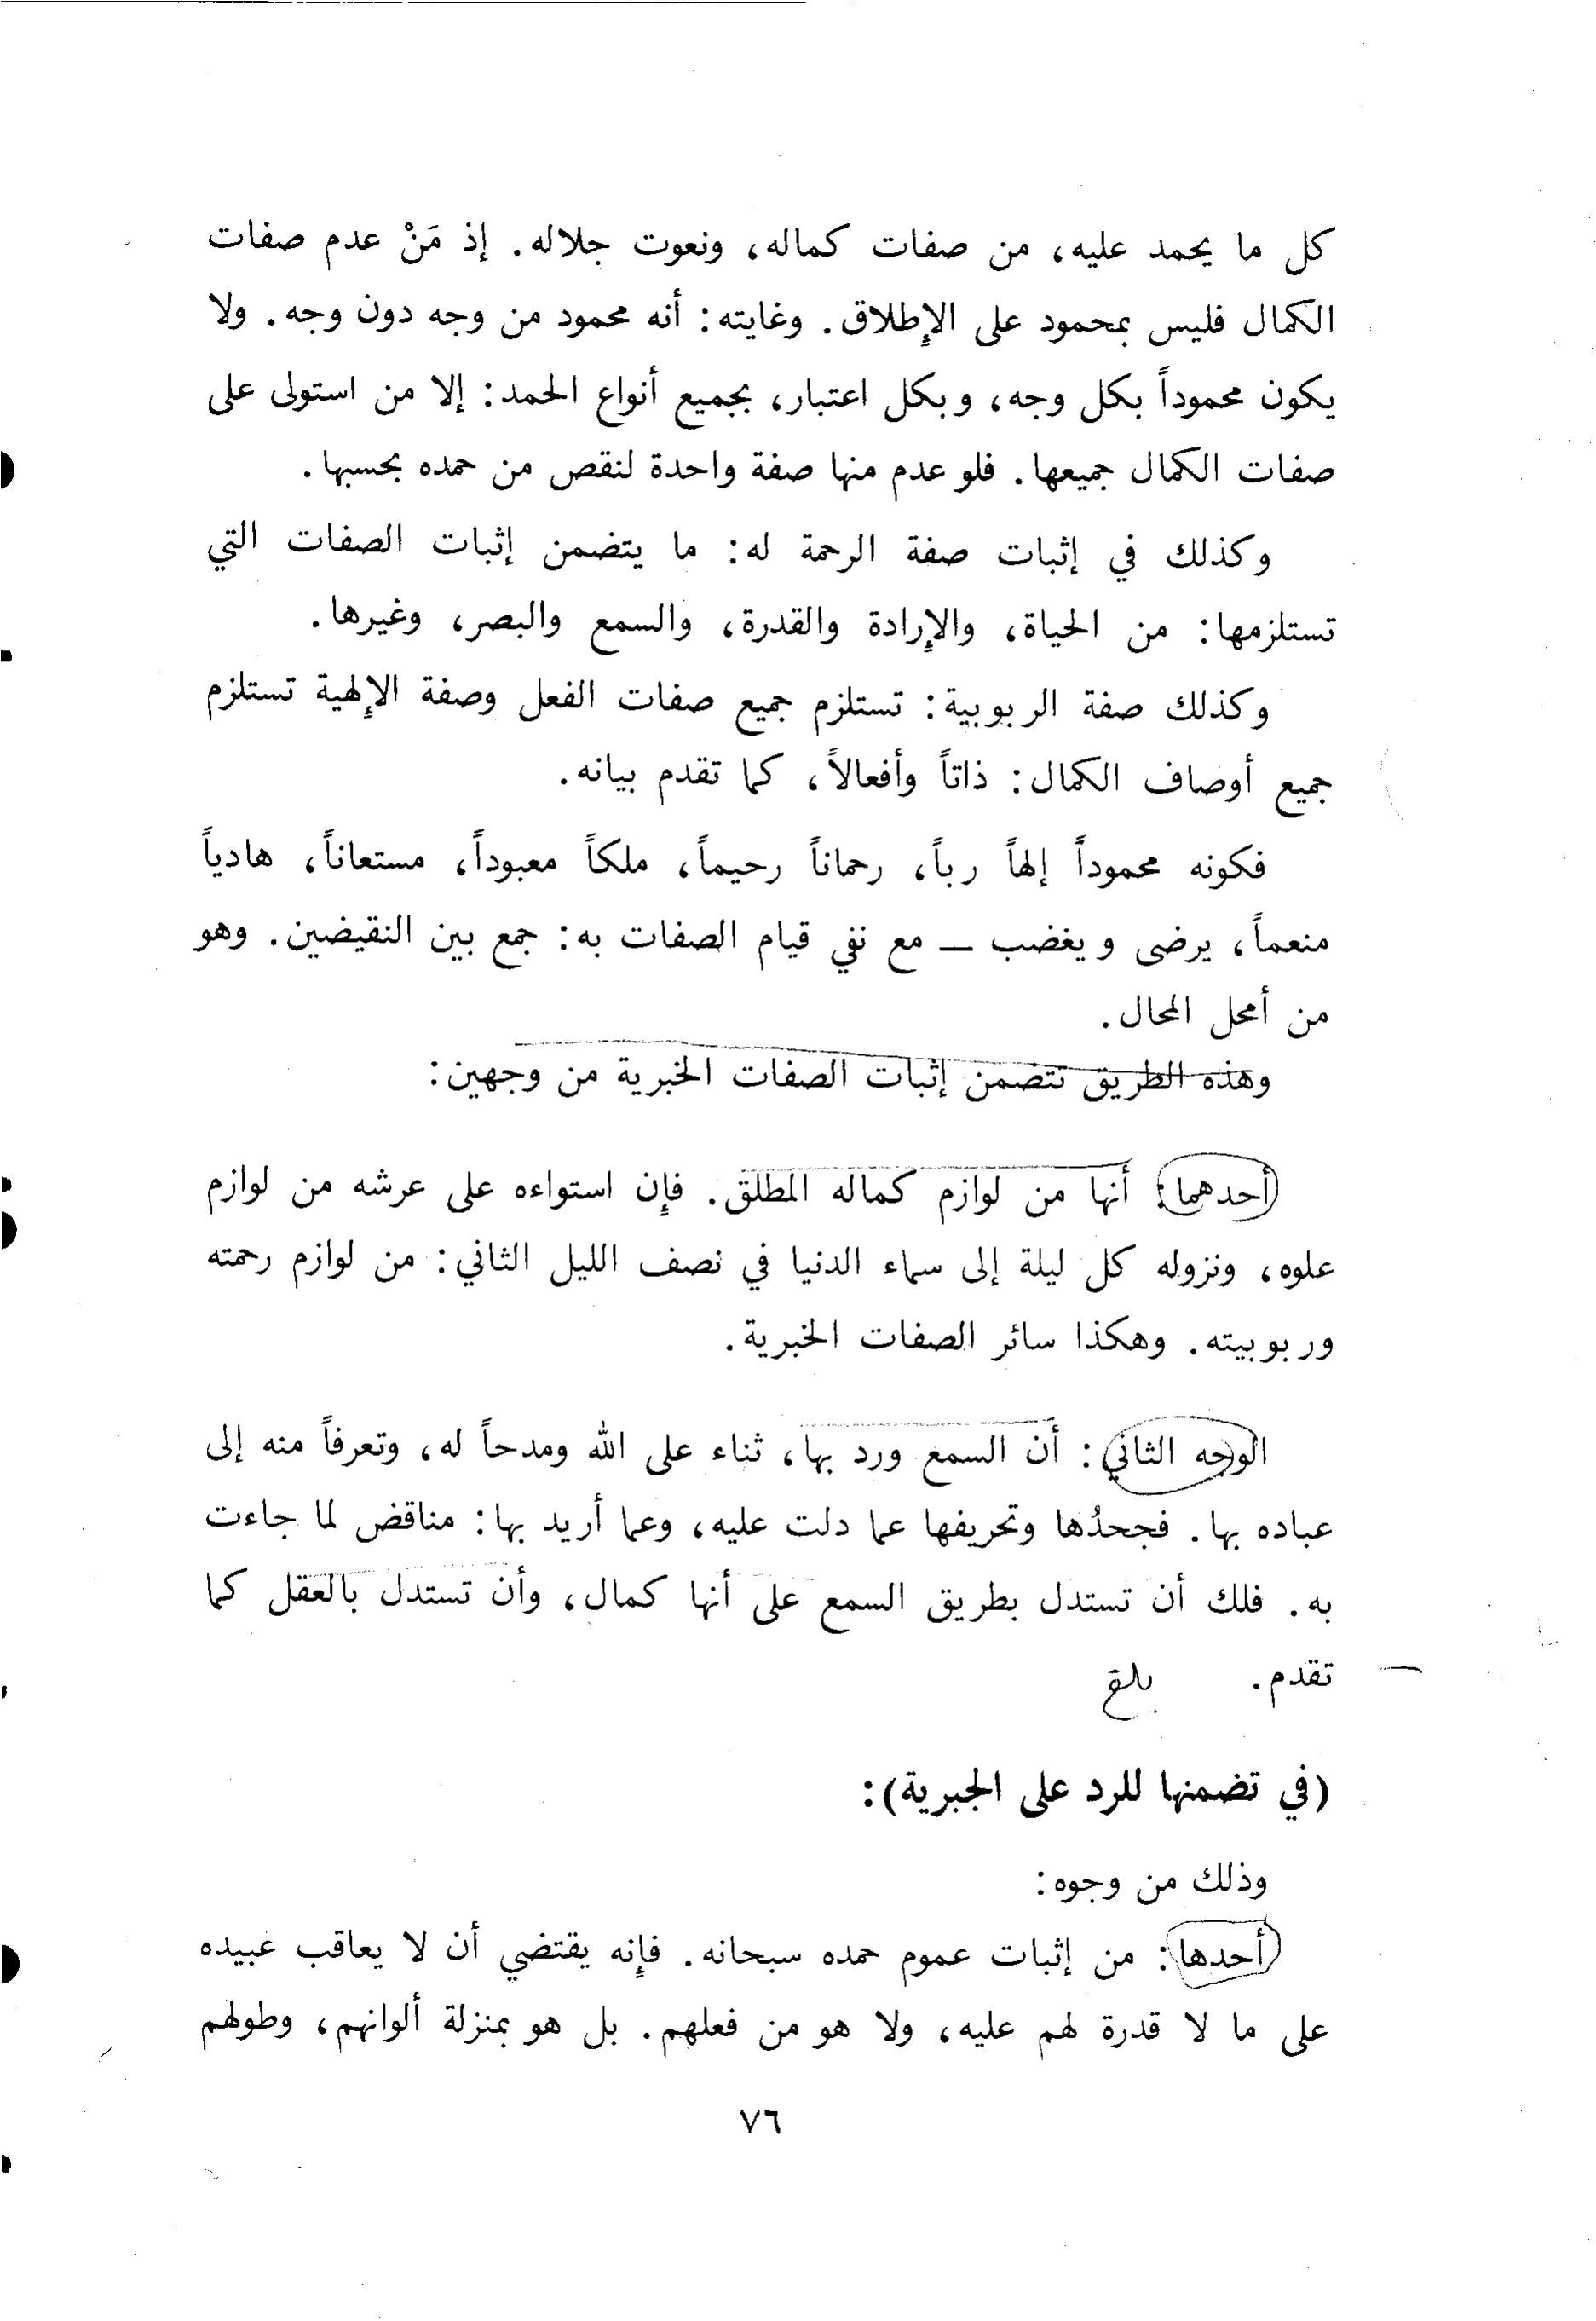 كل ما يحمد عليه، من صفات كماله، ونعوت جلاله. إذ مَنْ عدم صفات
الكمال فليس بمحمود على الإطلاق. وغايته: أنه محمود من وجه دون وجه. ولا
يكون محموداً بكل وجه، وبكل اعتبار، بجميع أنواع الحمد: إلا من استولى على
صفات الكمال جميعها. فلو عدم منها صفة واحدة لنقص من حمده بحسبها.
وكذلك في إثبات صفة الرحمة له: ما يتضمن إثبات الصفات التي
تستلزمها: من الحياة، والإرادة والقدرة، والسمع والبصر، وغيرها.
وكذلك صفة الربوبية: تستلزم جميع صفات الفعل وصفة الإلهية تستلزم
جميع أوصاف الكمال: ذاتاً وأفعالاً، كما تقدم بيانه.
فكونه محموداً إلهاً رباً، رحماناً رحيماً، ملكاً معبوداً، مستعاناً، هادياً
منعماً، يرضى ويغضب — مع نفي قيام الصفات به: جمع بين النقيضين. وهو
من أمحل المحال.
وهذه الطريق تتضمن إثبات الصفات الخبرية من وجهين:
أحدهما: أنها من لوازم كماله المطلق. فإن استواءه على عرشه من لوازم
علوه، ونزوله كل ليلة إلى سماء الدنيا في نصف الليل الثاني: من لوازم رحمته
وربوبيته. وهكذا سائر الصفات الخبرية.
الوجه الثاني: أن السمع ورد بها، ثناء على الله ومدحاً له، وتعرفاً منه إلى
عباده بها. فجحدُها وتحريفها عما دلت عليه، وعما أريد بها: مناقض لما جاءت
به. فلك أن تستدل بطريق السمع على أنها كمال، وأن تستدل بالعقل كما
تقدم. بلغ
(في تضمنها للرد على الجبرية):
وذلك من وجوه:
أحدها: من إثبات عموم حمده سبحانه. فإنه يقتضي أن لا يعاقب عبيده
على ما لا قدرة لهم عليه، ولا هو من فعلهم. بل هو بمنزلة ألوانهم، وطولهم
٧٦